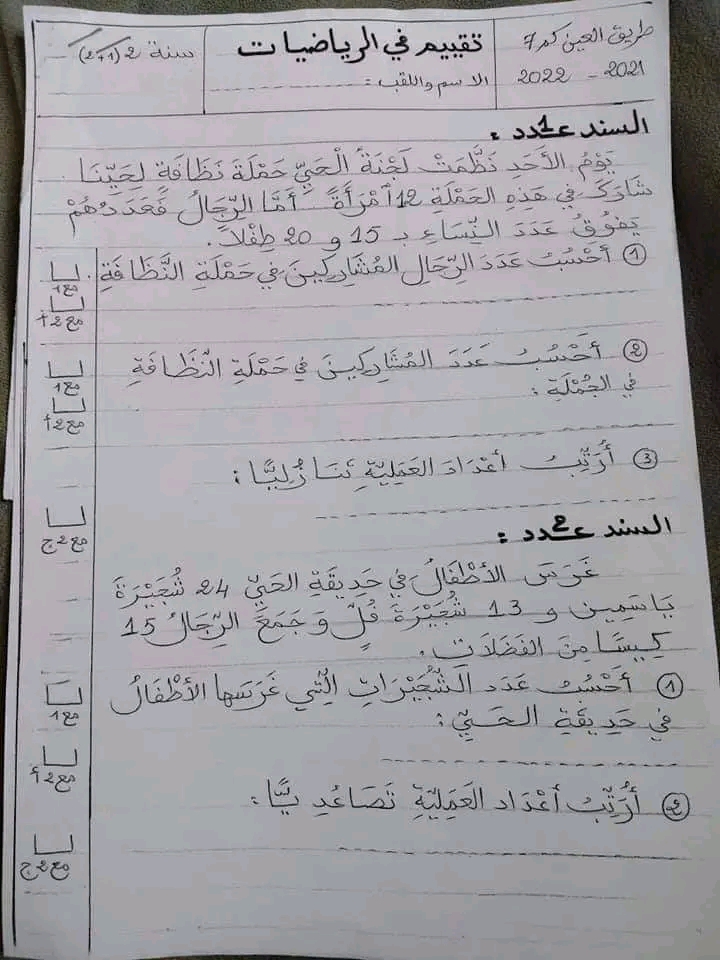 طريق العين كم 7
2021 - 2022
تقييم في الرياضيات
الاسم واللقب:
سنة 2 (1+2)
السند عـ1ـدد :
يَوْمُ الأَحَدِ نَظَّمَتْ لَجْنَةُ الْحَيِّ حَمْلَةَ نَظَافَةٍ لِحَيِّنَا.
شَارَكَ فِي هَذِهِ الحَمْلَةِ 12 امْرَأَةً أَمَّا الرِّجَالُ فَعَدَدُهُمْ
يَفُوقُ عَدَدَ النِّسَاءِ بـ 15 و 20 طِفْلًا.
① أَحْسُبُ عَدَدَ الرِّجَالِ المُشَارِكِينَ فِي حَمْلَةِ النَّظَافَةِ.
مع1
مع2أ
② أَحْسُبُ عَدَدَ المُشَارِكِينَ فِي حَمْلَةِ النَّظَافَةِ
في الجُمْلَةِ :
مع1
مع2أ
③ أُرَتِّبُ أَعْدَادَ العَمَلِيَّةِ تَنَازُلِيًّا :
مع2ج
السند عـ2ـدد :
غَرَسَ الأَطْفَالُ فِي حَدِيقَةِ الحَيِّ 24 شُجَيْرَةَ
يَاسَمِين و 13 شُجَيْرَةَ فُلٍّ وَ جَمَعَ الرِّجَالُ 15
كِيسًا مِنَ الفَضَلَاتِ.
① أَحْسُبُ عَدَدَ الشُّجَيْرَاتِ الَّتِي غَرَسَهَا الأَطْفَالُ
في حَدِيقَةِ الحَيِّ :
مع1
مع2أ
② أُرَتِّبُ أَعْدَادَ العَمَلِيَّةِ تَصَاعُدِيًّا :
مع2ج